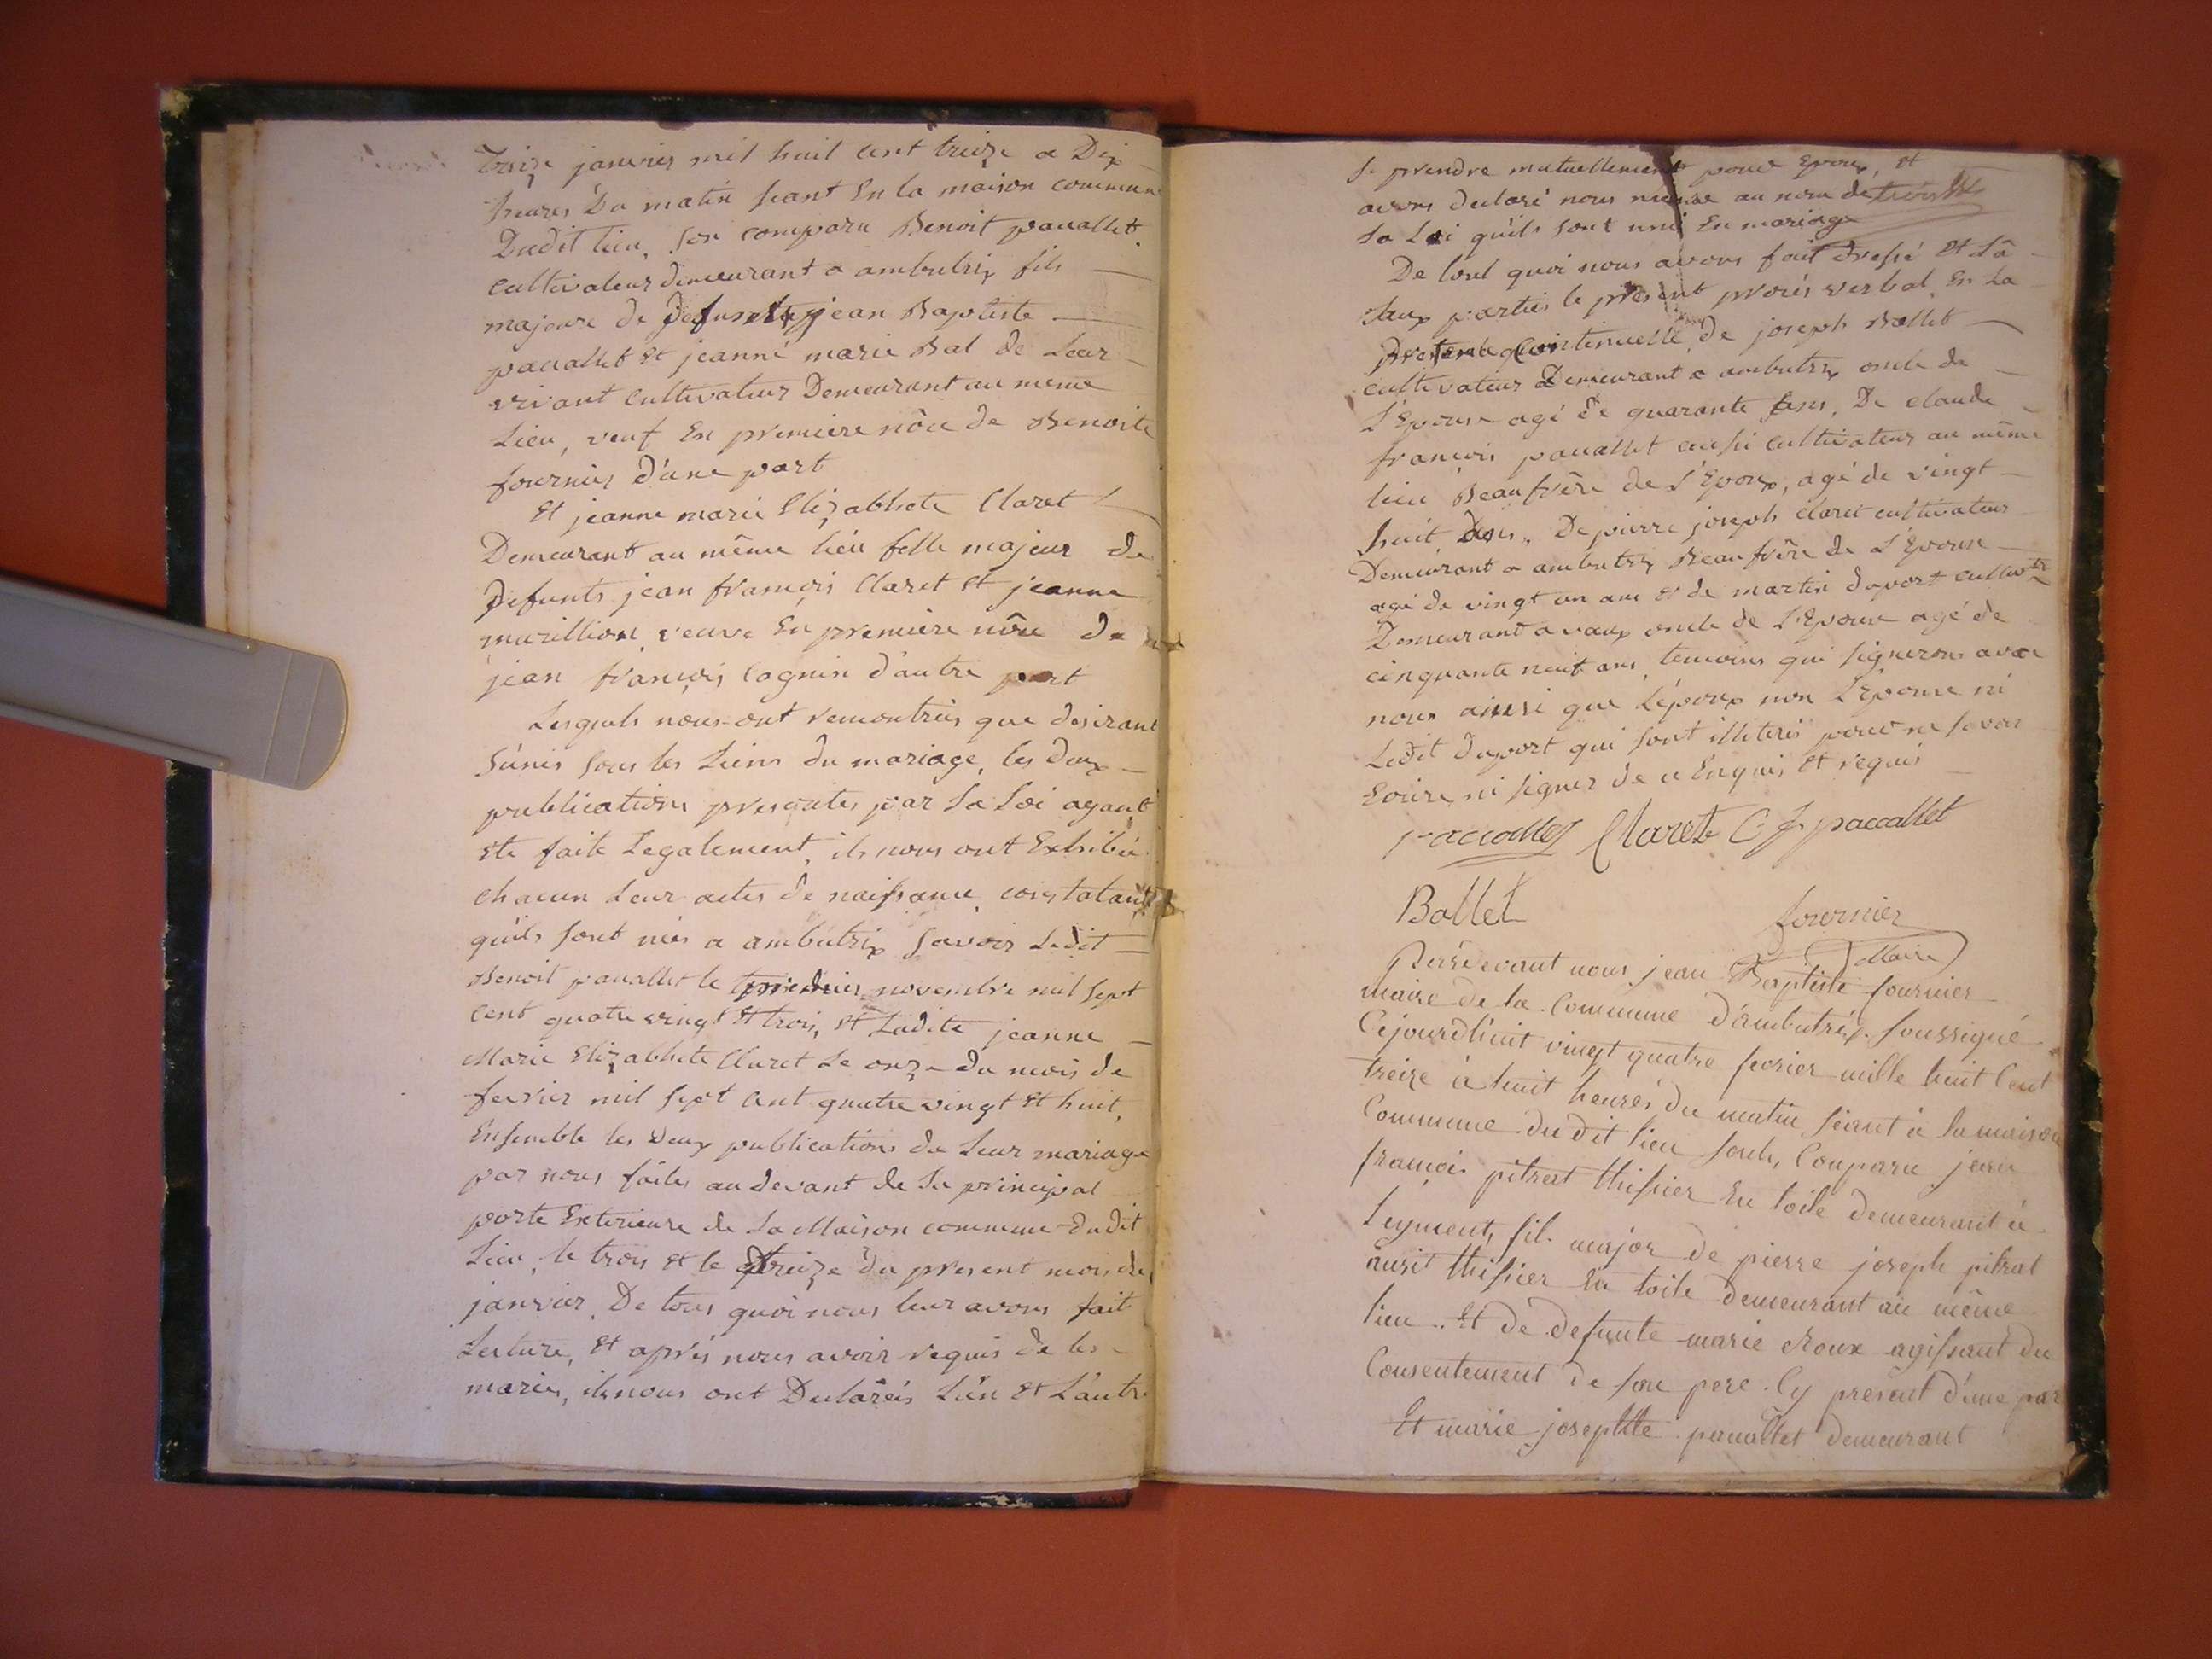 treize janvier mil huit cent treize a Dix
heures Du matin seant En la maison commune
Dudit lieu, son comparu Benoit pacallet
cultivateur demeurant a ambutrix fils
majeure de Defunts jean Baptiste
pacallet et jeanné marie Bal de Leur
vivant cultivateur Demeurant au meme
Lieu, veuf En premiere nôce de Benoite
fournier d'une part
Et jeanne marie Elizabhete Claret
Demeurant au même liéu fille majeur de
Defunts jean françois Claret et jeanne
marillion veuve En premiere nôce de
jean françois Cagnin d'autre part
Lesquels nous ont remontrées que desirant
s'únir sous les Liens du mariage, les deux
publications prescrites par La Loi ayant
ete faite Legalement, ils nous ont Exhibée
chacun Leur actes de naissance, constatant
qu'ils sont nés a ambutrix savoir Ledit
Benoit pacallet le novembre mil sept
cent quatre vingt et trois, et Ladite jeanne
Marie Elizabhete Claret Le onze du mois de
fevrier mil sept cent quatre vingt et huit,
Ensemble les Deux publications de Leur mariage
par nous faites au devant de La principal
porte Exterieure de La Maison commune dudit
Lieu, le trois et le treize du present mois de
janvier. De tous quoi nous leur avons fait
Lecture, Et aprés nous avoir requis de les
marier, ils nous ont Declarées L'ún et L'autre
se prendre mutuellement pour Epoux, et
avons declaré nous meme au nom de
La Loi qu'ils sont unis En mariage
De tout quoi nous avons fait dressé et Là
Leux parties le présent procés verbal En La
presence de joseph Ballet
cultivateur Demeurant a ambutrix oncle de
L'Epouse agé de quarante ans, De claude
françois pacallet aussi cultivateur au même
lieu Beaufrère de L'Epoux, agé de vingt
huit ans, De pierre joseph claret cultivateur
Demeurant a ambutrix Beaufrère de L'Epouse
agé de vingt un ans et de martin duport cultivtr
Demeurant a vaux oncle de L'Epouse agé de
cinquante neuf ans, temoins qui signerons avec
nous ainsi que L'époux non L'Epouse ni
Ledit duport qui sont illiterés pour ne savoir
Ecrire ni signer de ce Enquis et requis
Pacallet Claret C f pacallet
Ballet fournier
Maire
Pardevant nous jean Baptiste fournier
maire de la Commune d'ambutrix. soussigné
Cejourdhuit vingt quatre fevrier mille huit Cent
treize à huit heures du matin séant à la maison
Commune du dit lieu sont, Comparu jean
françois pitrat thissier En toile demeurant à
Leyment, fils major de pierre joseph pitrat
aussit thissier En toile demeurant au même
lieu. Et de defunte marie Roux agissant du
Consentement de son pere. Cy présent d'une part
Et marie josephte pacallet demeurant